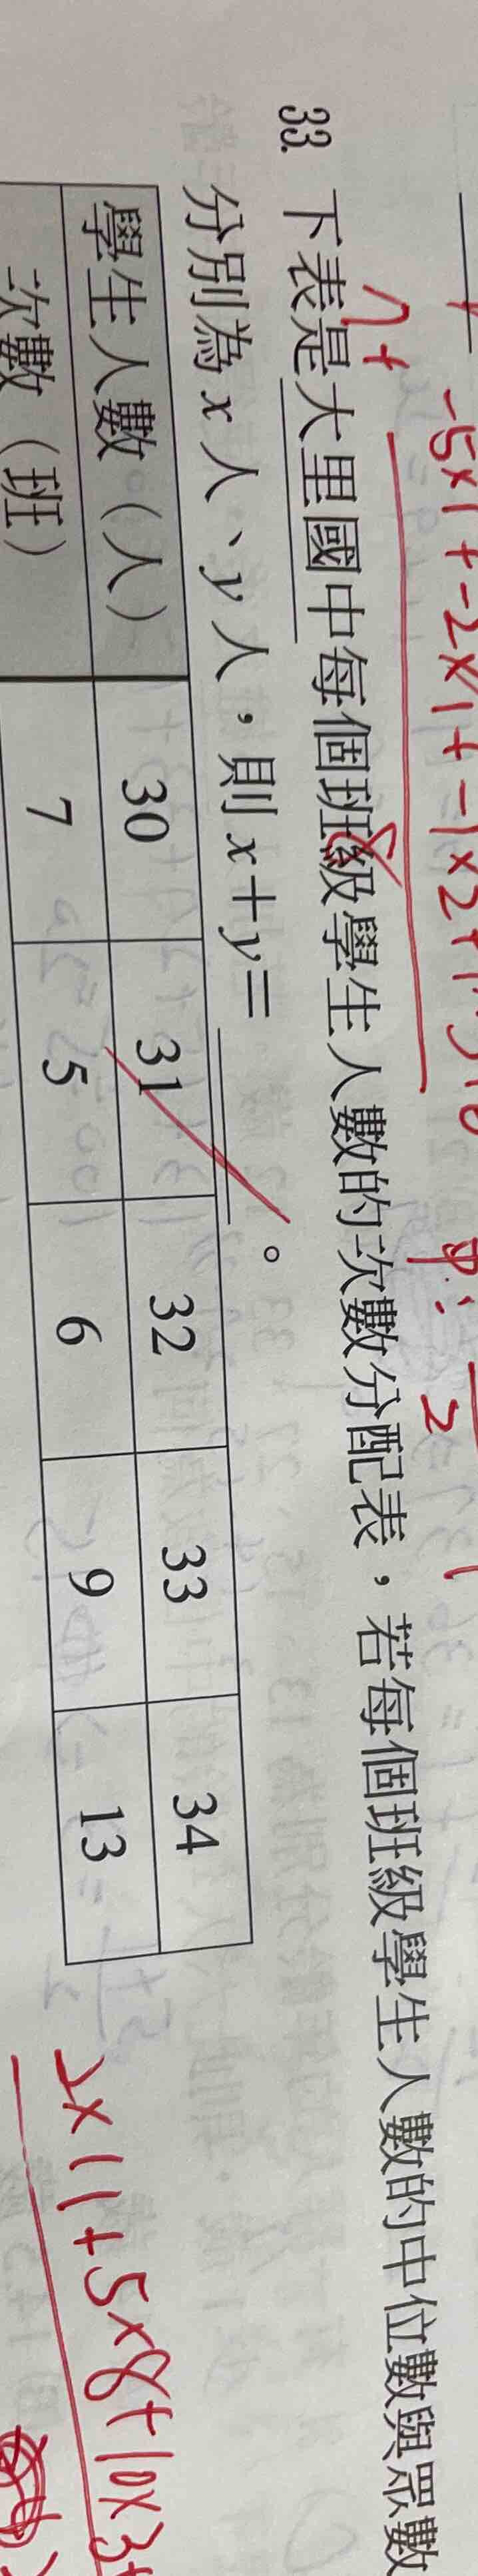 -5×1+-2×1+-1×2+1
33. 下表是大里國中每個班級學生人數的次數分配表，若每個班級學生人數的中位數與眾數
分別為x人、y人，則x+y=＿＿＿。
學生人數（人） 30 31 32 33 34
次數（班） 7 5 6 9 13
2×11+5×8+10×3+